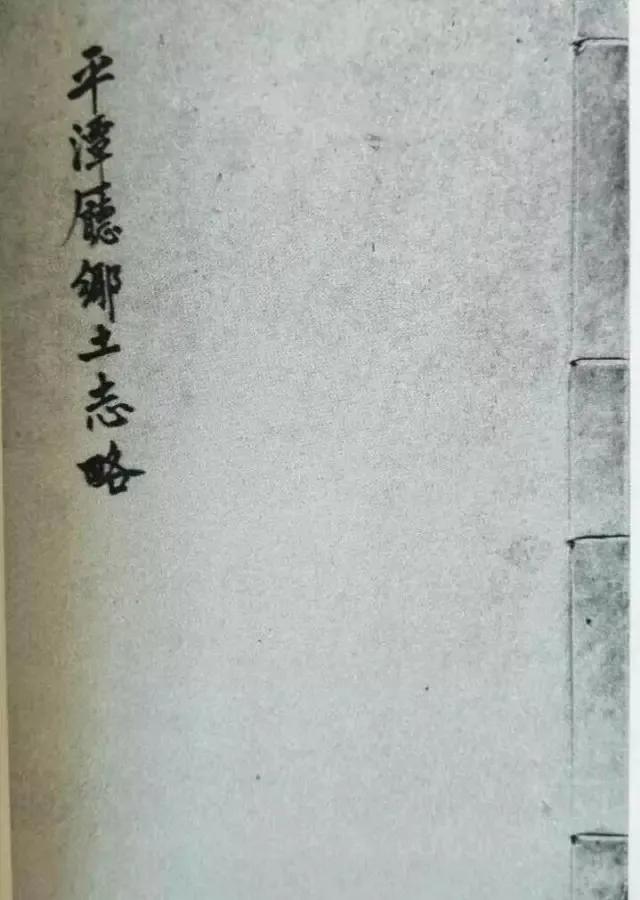 平潭廳鄉土志略